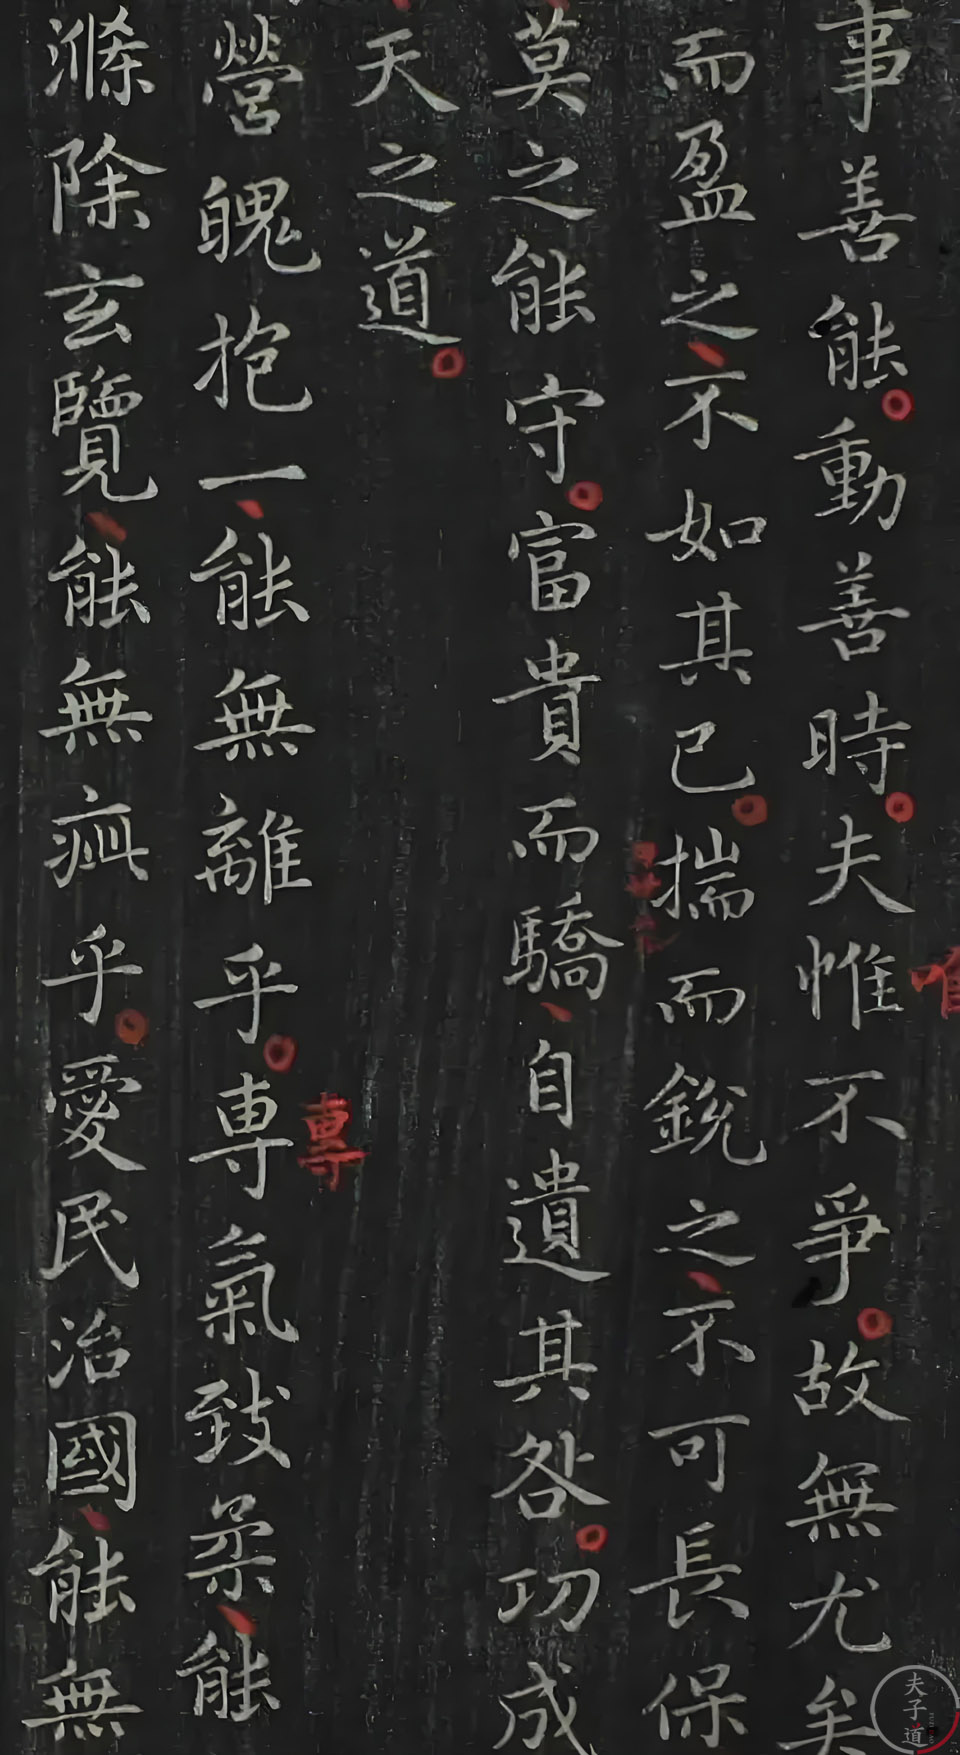 事善能動善時夫惟不爭故無尤矣
而盈之不如其已揣而銳之不可長保
莫之能守富貴而驕自遺其咎功成
天之道
營魄抱一能無離乎専氣致柔能
滌除玄覽能無疵乎愛民治國能無
唯
專
夫子道